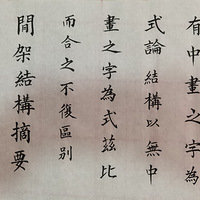 有中畫之字為
式論結構以無中
畫之字為式茲比
而合之不復區別
間架結構摘要